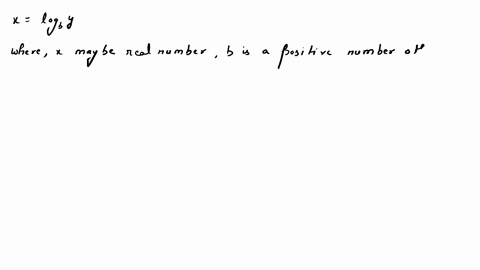 x = log_b y
where, x may be real number, b is a positive number oth